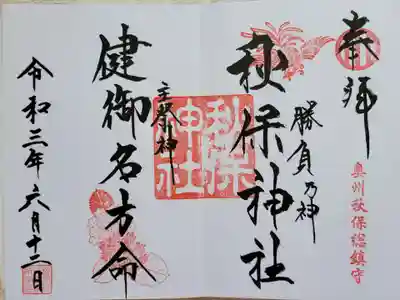 奉拝
奥州秋保総鎮守
勝負乃神
秋保神社
秋保
神社
主祭神
健御名方命
令和三年六月十二日